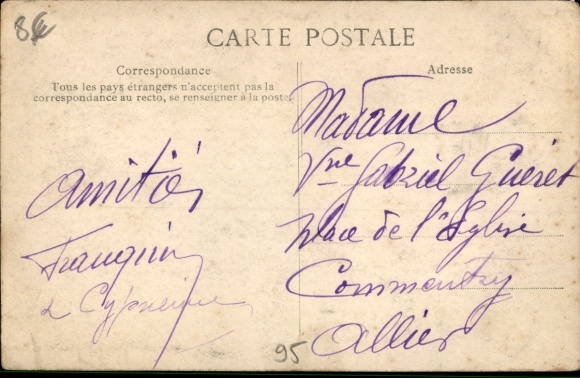 8€
CARTE POSTALE
Correspondance
Tous les pays étrangers n'acceptent pas la
correspondance au recto, se renseigner à la poste.
Amitiés
&
Adresse
Madame
Vve Gabriel Guéret
place de l'Église
Commentry
Allier
95